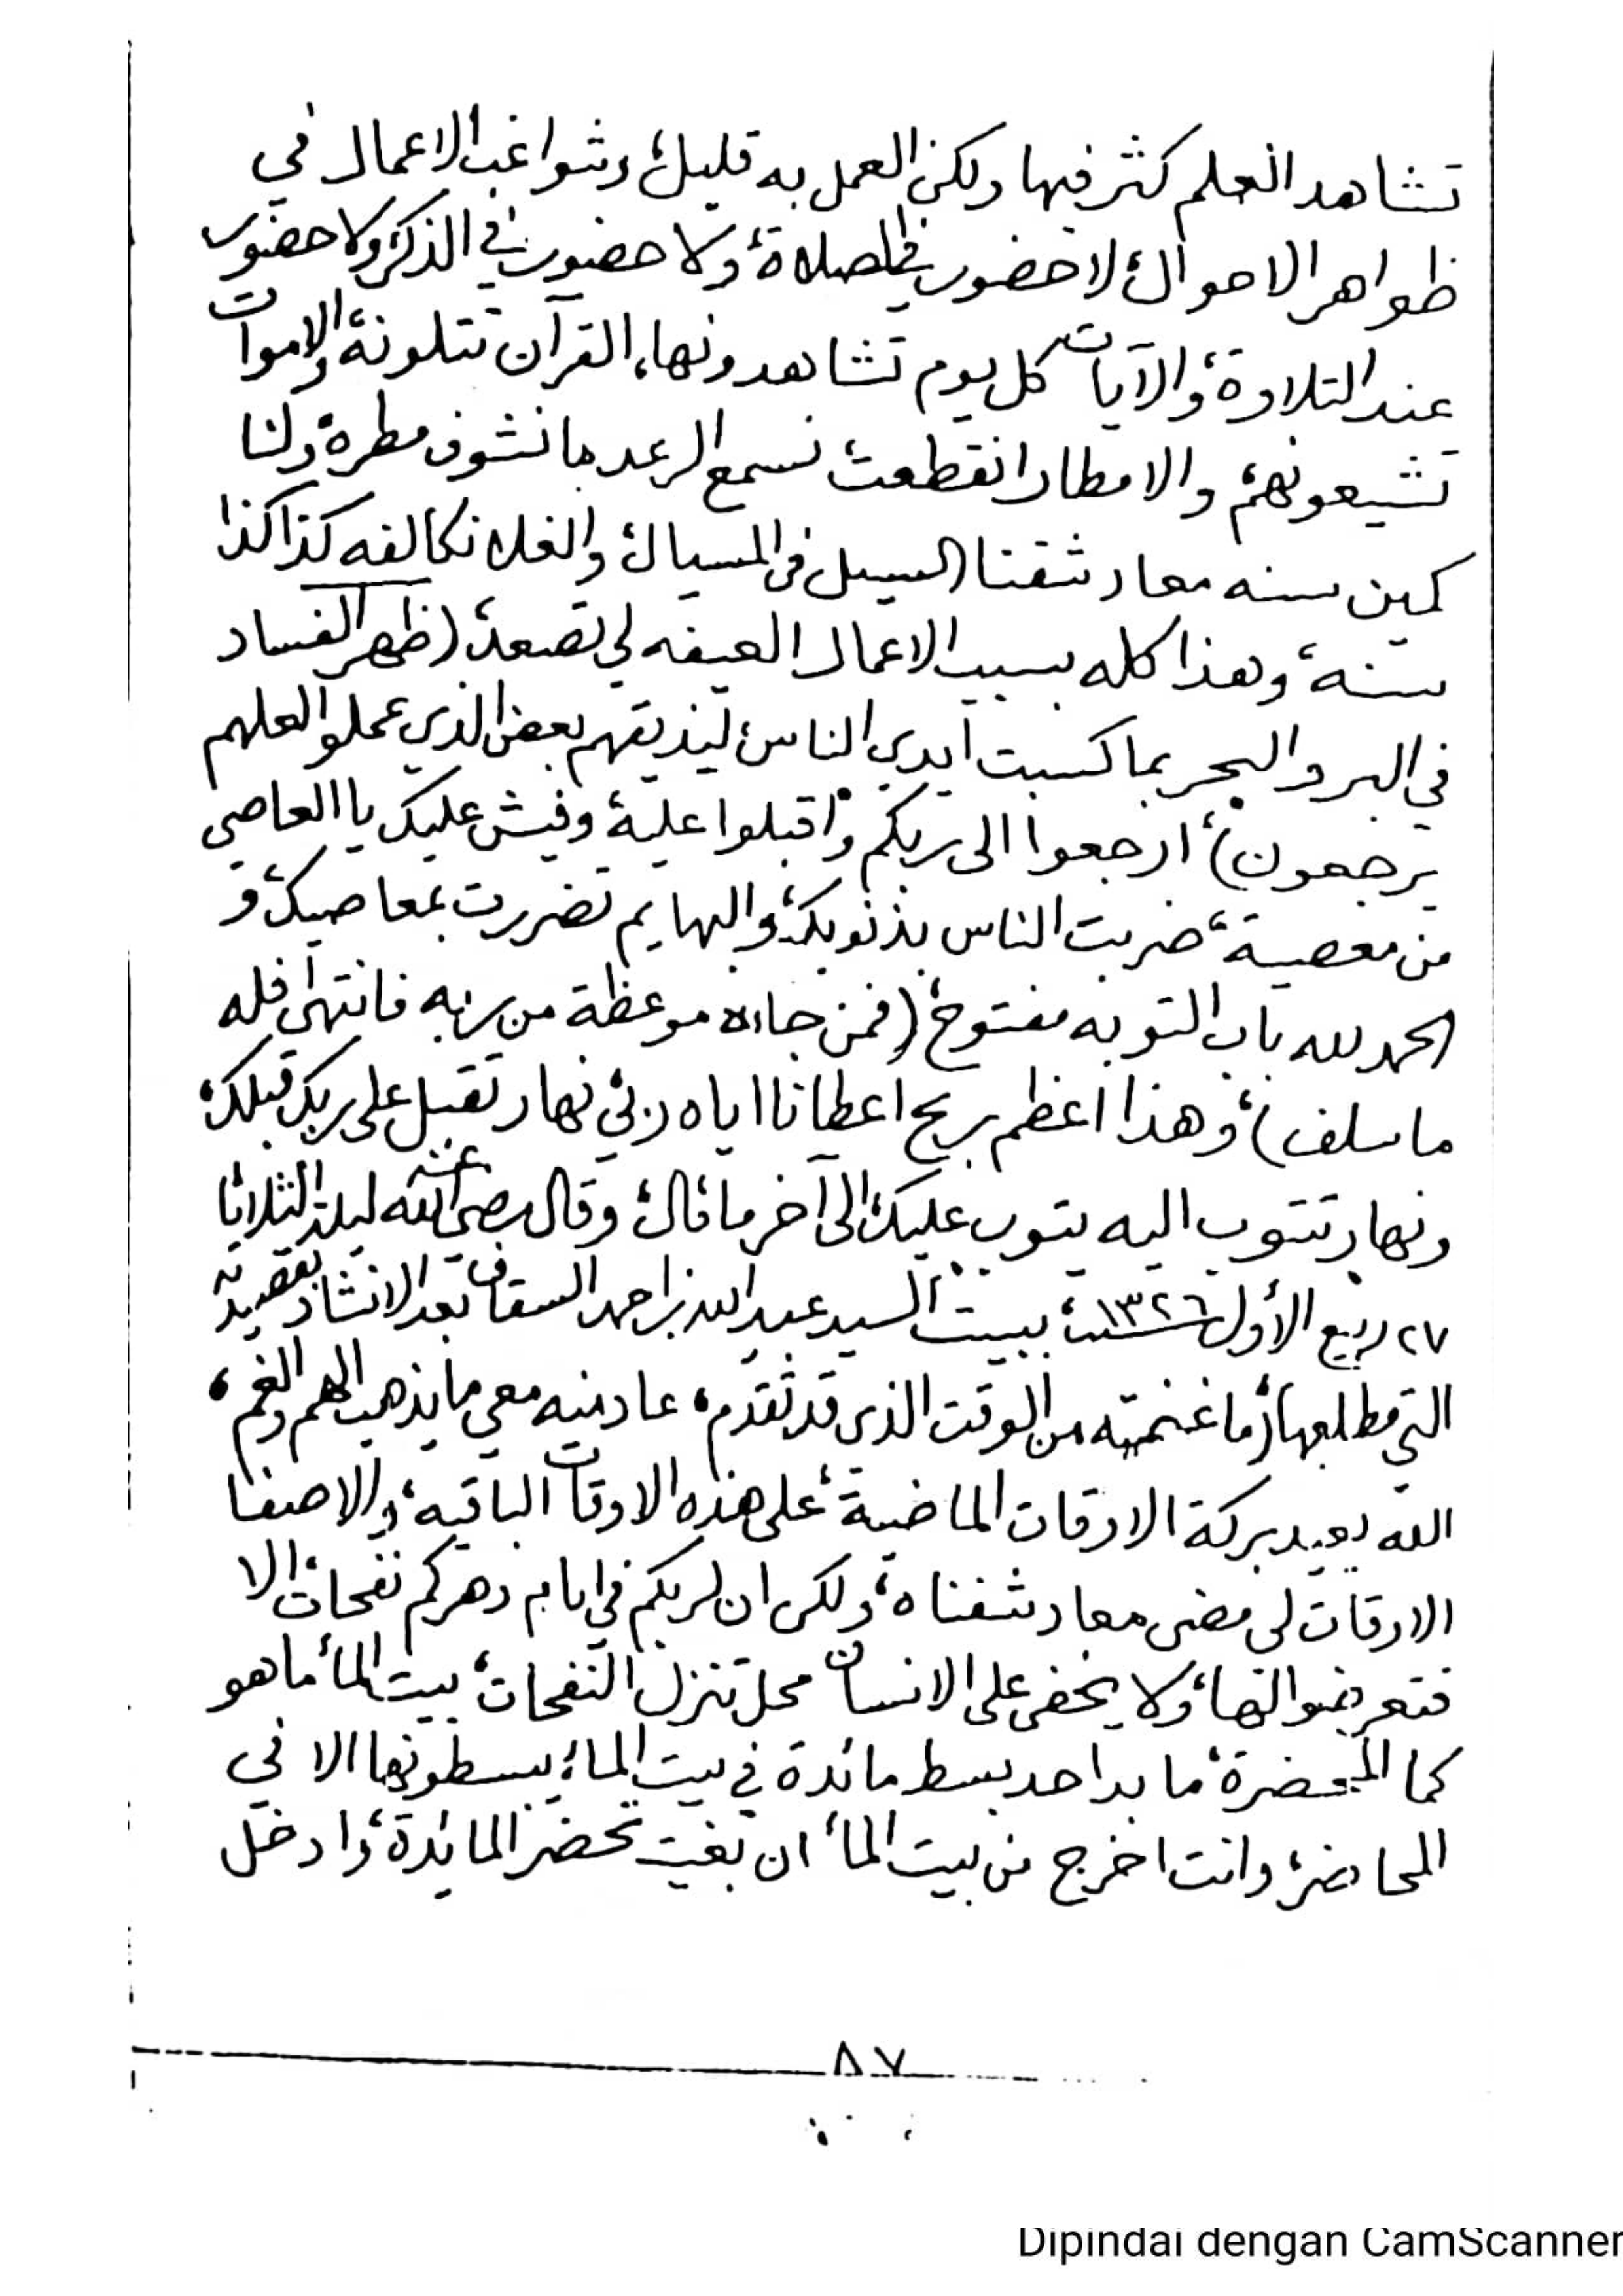 تشاهد العلم كثر فيها ولكن العمل به قليل، وشواغب الاعمال في
ظواهر الاحوال، لا حضور في الصلاة، ولا حضور في الذكر، ولا حضور
عند التلاوة، والآيات كل يوم تشاهدونها، القرآن تتلونه، والاموات
تشيعونهم، والامطار انقطعت، نسمع الرعد ما نشوف مطره، ولنا
كمين سنه معاد شفنا السيل في المسيال، والغلا نكالفه كذا كذا
سنه، وهذا كله بسبب الاعمال العيفه لي تصعد، (ظهر الفساد
في البر والبحر بما كسبت أيدي الناس ليذيقهم بعض الذي عملوا لعلهم
يرجعون)، ارجعوا الى ربكم واقبلوا عليه، وفيش عليك يا العاصي
من معصية، ضريت الناس بذنوبك، والبهايم تضررت بمعاصيك، و
الحمد لله باب التوبه مفتوح، (فمن جاءه موعظة من ربه فانتهى فله
ما سلف)، وهذا اعظم ربح اعطانا اياه ربي، نهار تقبل على ربك قبلك،
ونهار تتوب اليه يتوب عليك، الى آخر ما قال، وقال رضي الله عنه ليلة الثلاثا
٢٧ ربيع الأول سنة ١٣٢٦، ببيت السيد عبد الله بن احمد السقاف بعد الانشاد بقصيدته
التي مطلعها، (ما غنمته من الوقت الذي قد تقدم، عاد منه معي ما يذهب الهم والغم)،
الله يعيد بركة الاوقات الماضية، على هذه الاوقات الباقيه، والا صفا
الاوقات لي مضى معاد شفناه، ولكن ان لربكم في ايام دهركم نفحات، الا
فتعرضوا لها، ولا يخفى على الانسان محل تنزل النفحات، بيت الماء ما هو
كما المحضرة، ما بدا حد بسط مائدة في بيت الماء، يبسطونها الا في
المحاضر، وانت اخرج من بيت الماء ان بغيت تحضر المائدة، وادخل
٨٧
Dipindai dengan CamScanner